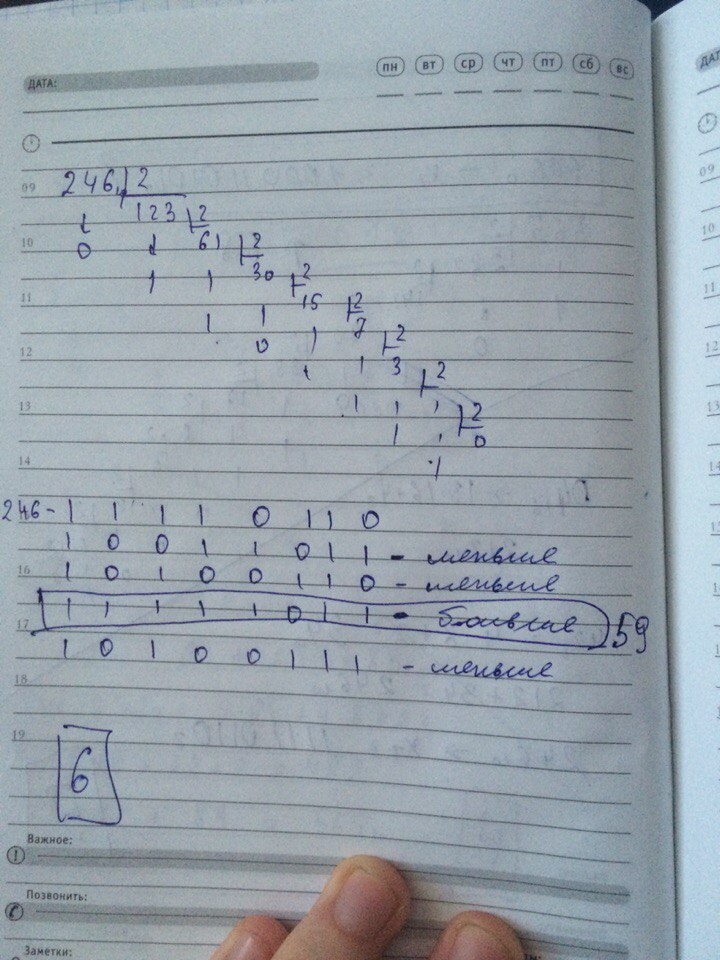 ПН ВТ СР ЧТ ПТ СБ ВС
ДАТА:
ДАТ
09 246 2
123 2
10 0 61 2
1 1 30 2
11 15 2
1 1 7 2
12 0 1 2
1 1 3 2
13 1 1 1 2
1 1 0
14 1
246 - 1 1 1 1 0 1 1 0
1 0 0 1 1 0 1 1 - меньше
16 1 0 1 0 0 1 1 0 - меньше
1 1 1 1 1 0 1 1 - больше 59
17
1 0 1 0 0 1 1 1 - меньше
18
19
6
Важное:
Позвонить:
Заметки:
09
10
11
12
13
14